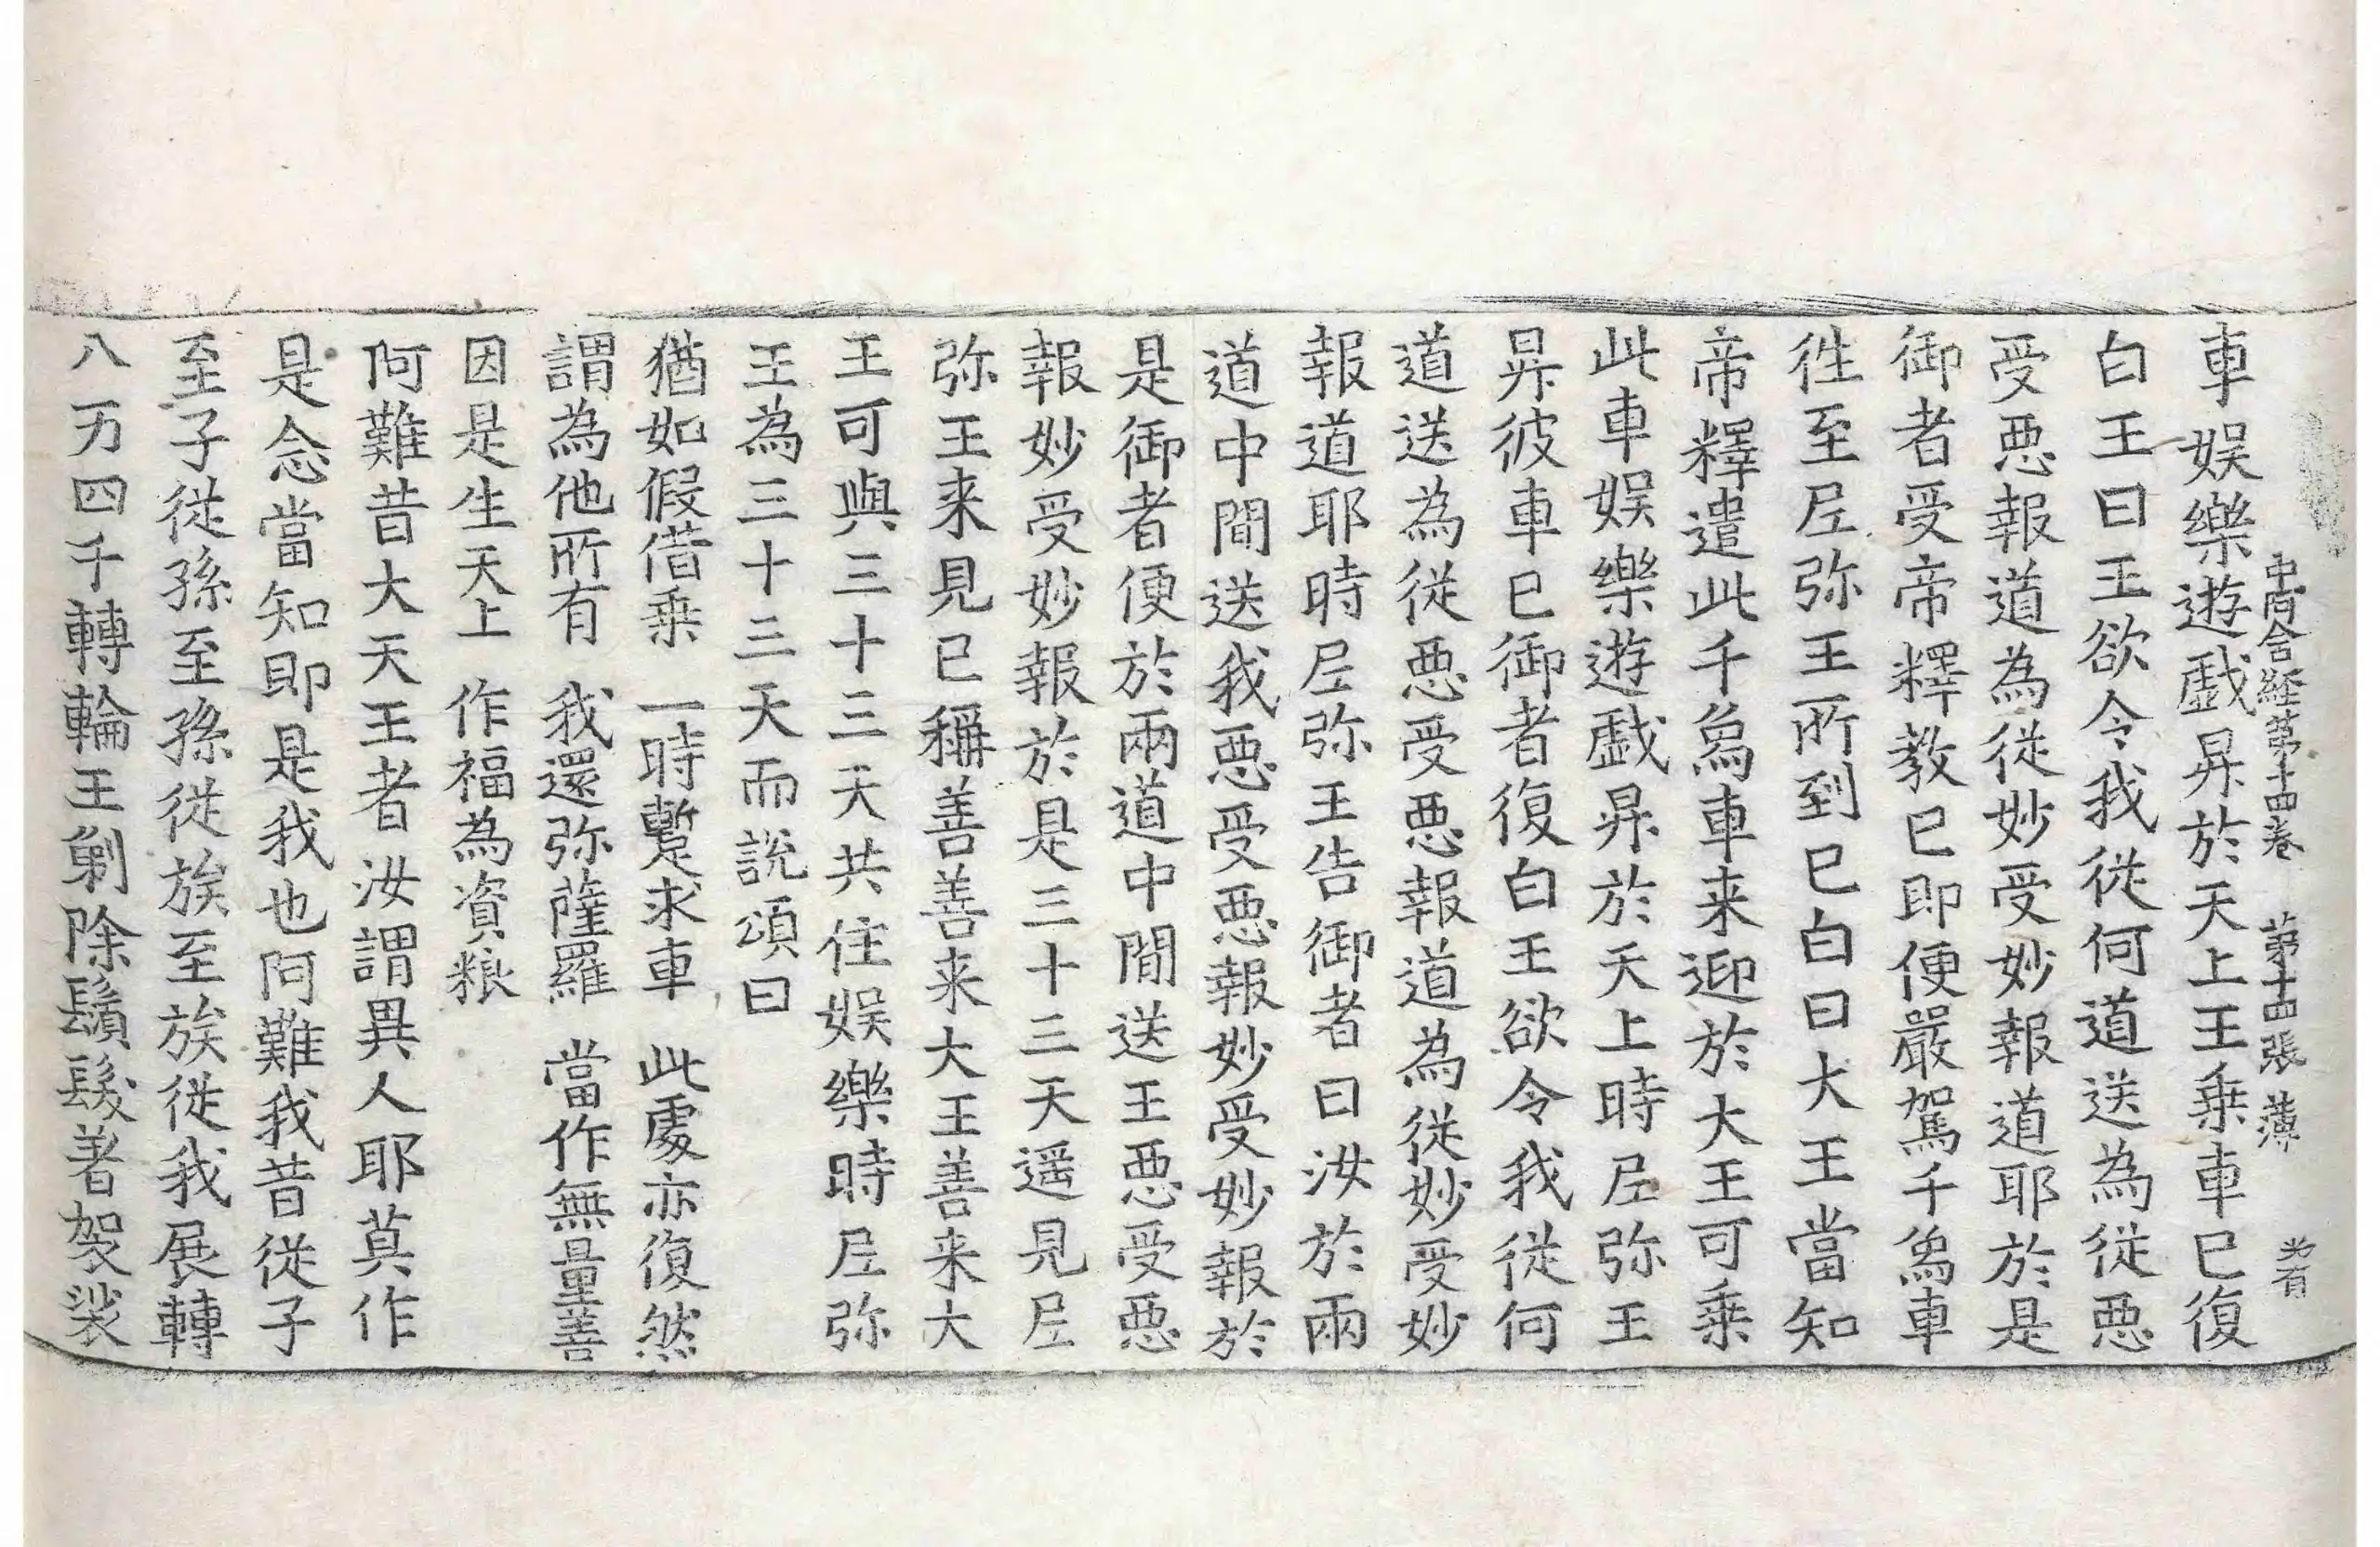 中阿含経苐十四卷　苐十四張　薄
車娯樂遊戲昇於天上王乗車已復
白王曰王欲令我従何道送為従悪
受悪報道為従妙受妙報道耶於是
御者受帝釋教已即便嚴駕千象車
徃至尼弥王所到已白曰大王當知
帝釋遣此千象車来迎於大王可乗
此車娯樂遊戲昇於天上時尼弥王
昇彼車已御者復白王欲令我従何
道送為従悪受悪報道為従妙受妙
報道耶時尼弥王告御者曰汝於兩
道中間送我悪受悪報妙受妙報於
是御者便於兩道中間送王悪受悪
報妙受妙報於是三十三天遥見尼
弥王来見已稱善善来大王善来大
王可與三十三天共住娯樂時尼弥
王為三十三天而説頌曰
猶如假借乗　一時蹔求車　此處亦復然
謂為他所有　我還弥薩羅　當作無量善
因是生天上　作福為資粮
阿難昔大天王者汝謂異人耶莫作
是念當知即是我也阿難我昔従子
至子従孫至孫従族至族従我展轉
八万四千轉輪王剃除鬚髮著袈裟